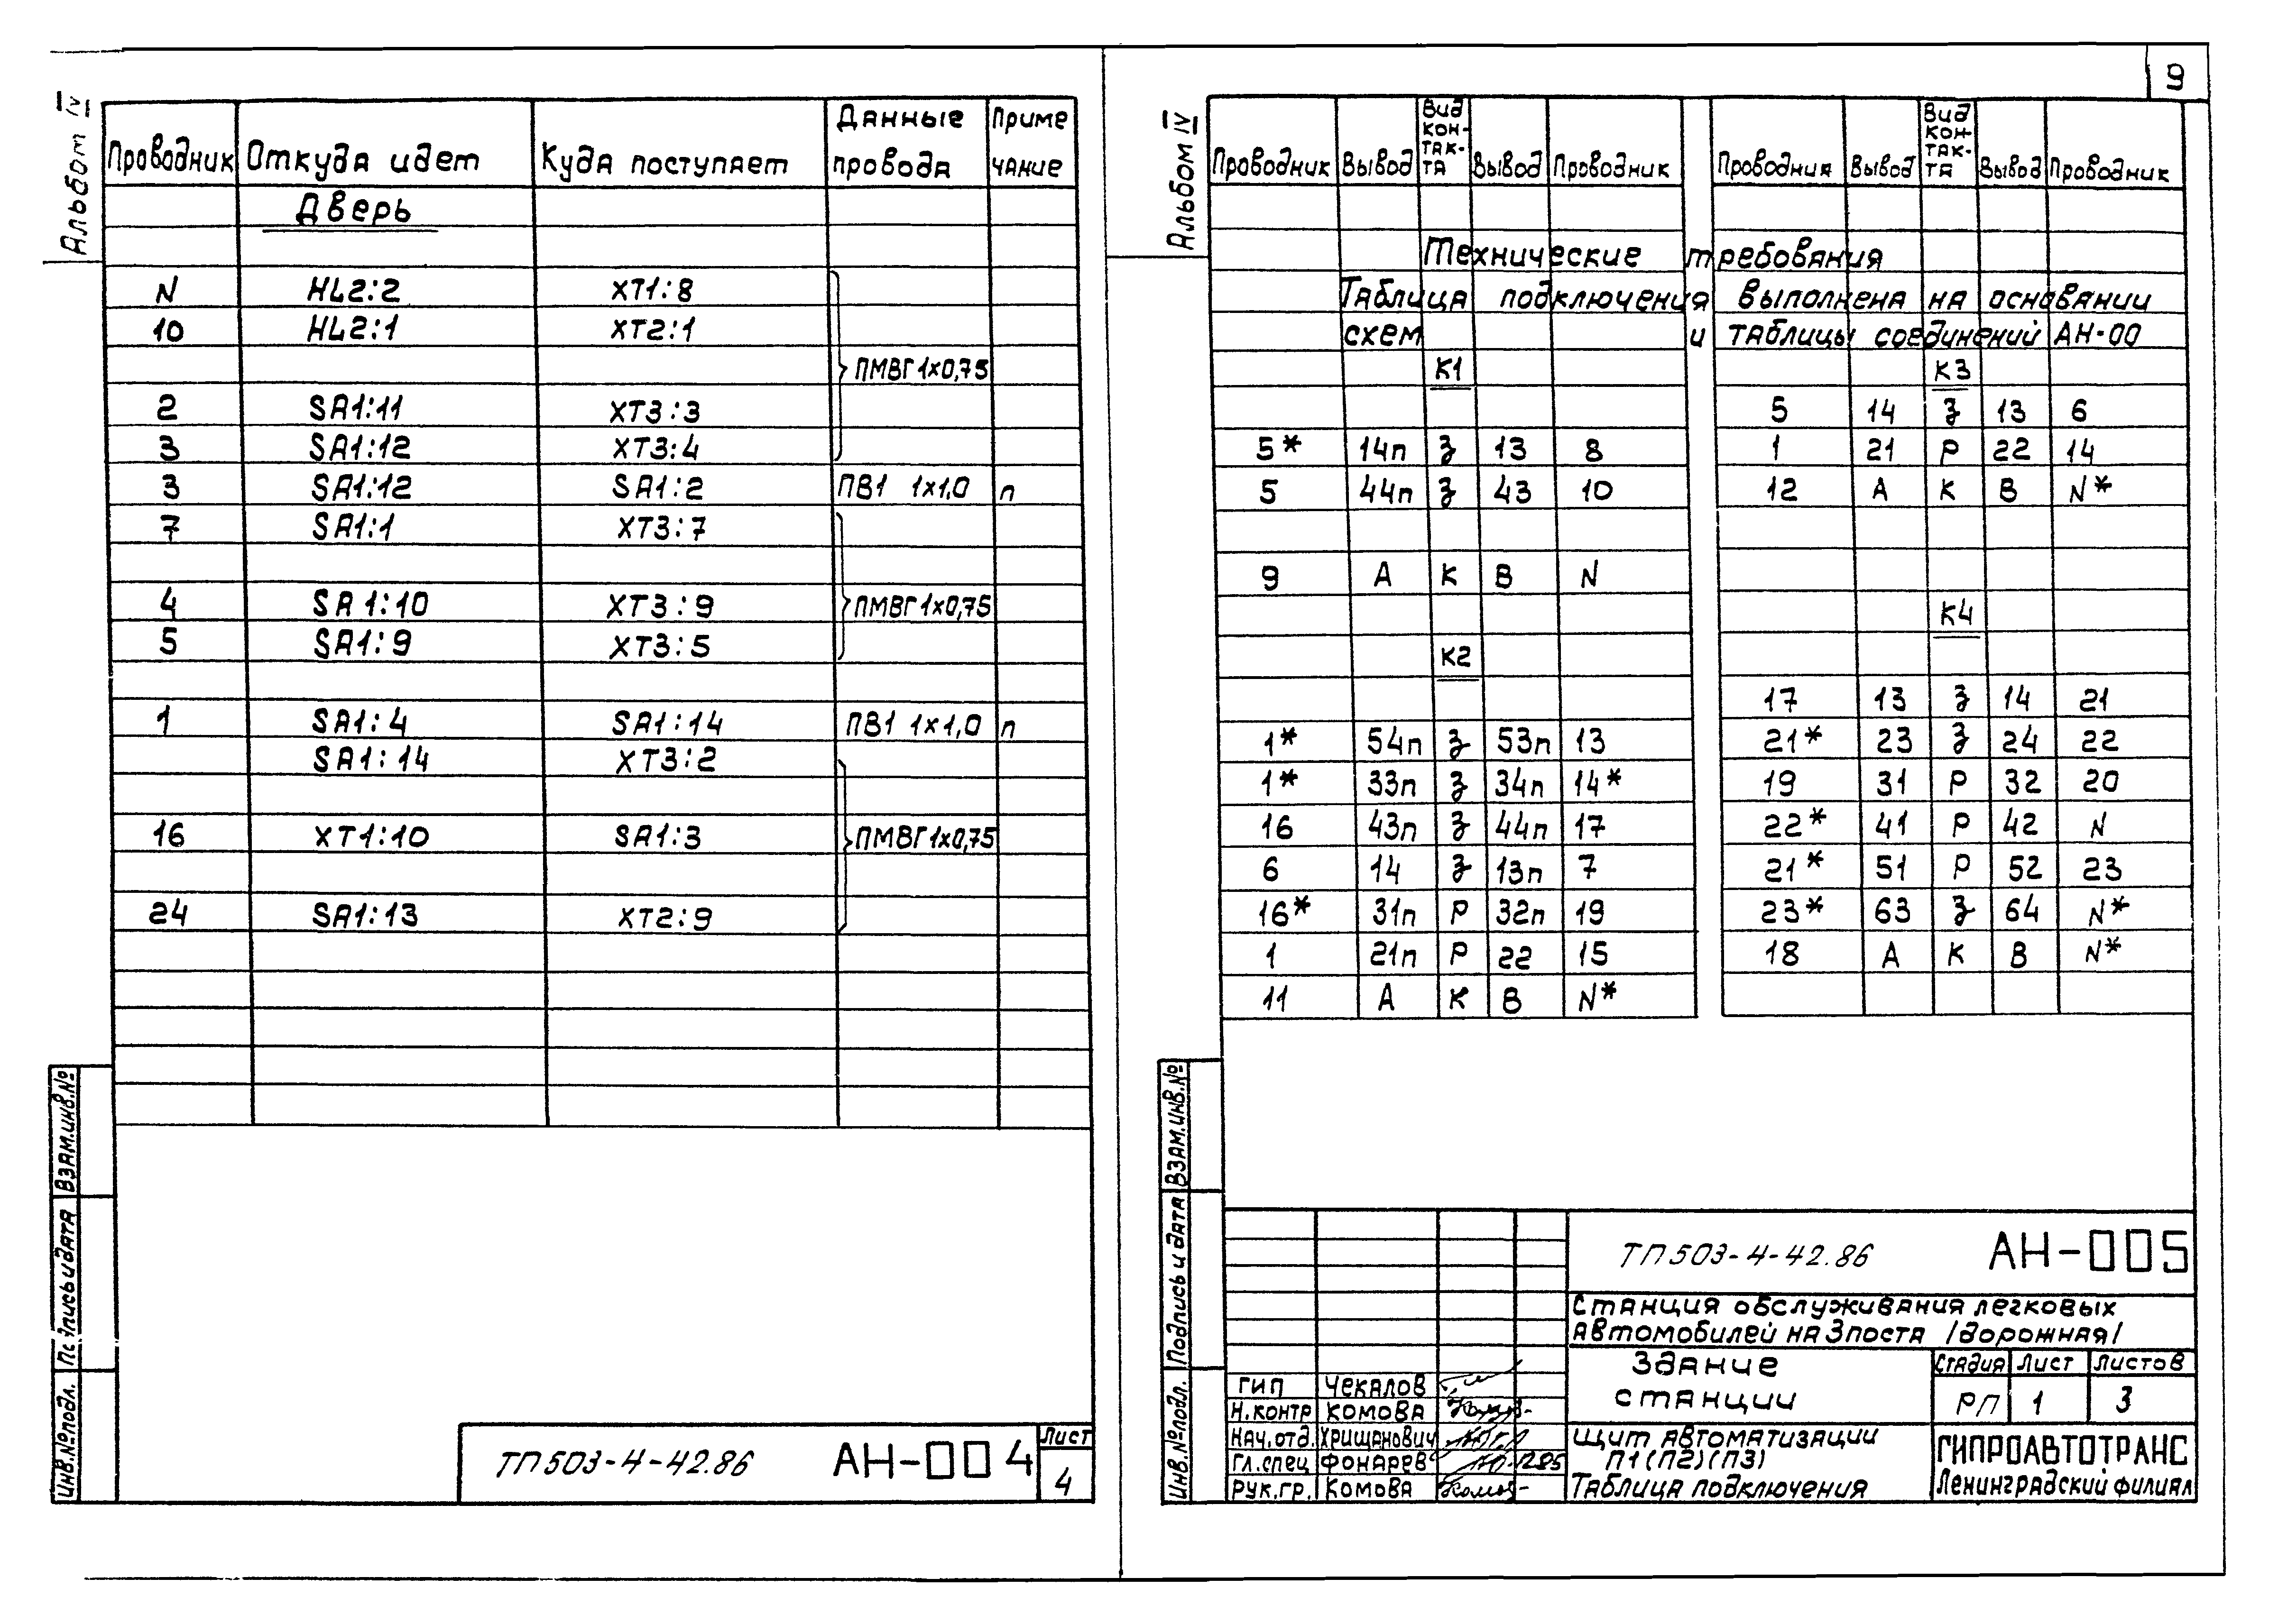 9
Альбом IV
Проводник Откуда идет Куда поступает Данные провода Примечание
Дверь
N HL2:2 XT1:8
10 HL2:1 XT2:1
ПМВГ 1х0,75
2 SA1:11 XT3:3
3 SA1:12 XT3:4
3 SA1:12 SA1:2 ПВ1 1х1,0 п
7 SA1:1 XT3:7
4 SA1:10 XT3:9 ПМВГ 1х0,75
5 SA1:9 XT3:5
1 SA1:4 SA1:14 ПВ1 1х1,0 п
SA1:14 XT3:2
16 XT1:10 SA1:3 ПМВГ 1х0,75
24 SA1:13 XT2:9
Взам.инв.№
Подпись и дата
Инв.№ подл.
ТП503-4-42.86 АН-004 Лист
4
Альбом IV
Проводник Вывод Вид контакта Вывод Проводник
Проводния Вывод Вид контакта Вывод Проводник
Технические требования
Таблица подключения выполнена на основании
схем и таблицы соединений АН-00
К1
5* 14п З 13 8
5 44п З 43 10
9 А К В N
К2
1* 54п З 53п 13
1* 33п З 34п 14*
16 43п З 44п 17
6 14 З 13п 7
16* 31п Р 32п 19
1 21п Р 22 15
11 А К В N*
К3
5 14 З 13 6
1 21 Р 22 14
12 А К В N*
К4
17 13 З 14 21
21* 23 З 24 22
19 31 Р 32 20
22* 41 Р 42 N
21* 51 Р 52 23
23* 63 З 64 N*
18 А К В N*
Взам.инв.№
Подпись и дата
Инв.№ подл.
ТП503-4-42.86 АН-005
Станция обслуживания легковых
автомобилей на 3 поста /дорожная/
Здание
станции
Стадия Лист Листов
РП 1 3
ГИП Чекалов
Н.контр Комова
Нач.отд. Хришанович
Гл.спец Фонарев
Рук.гр. Комова
Щит автоматизации
П1(П2)(П3)
Таблица подключения
ГИПРОАВТОТРАНС
Ленинградский филиал